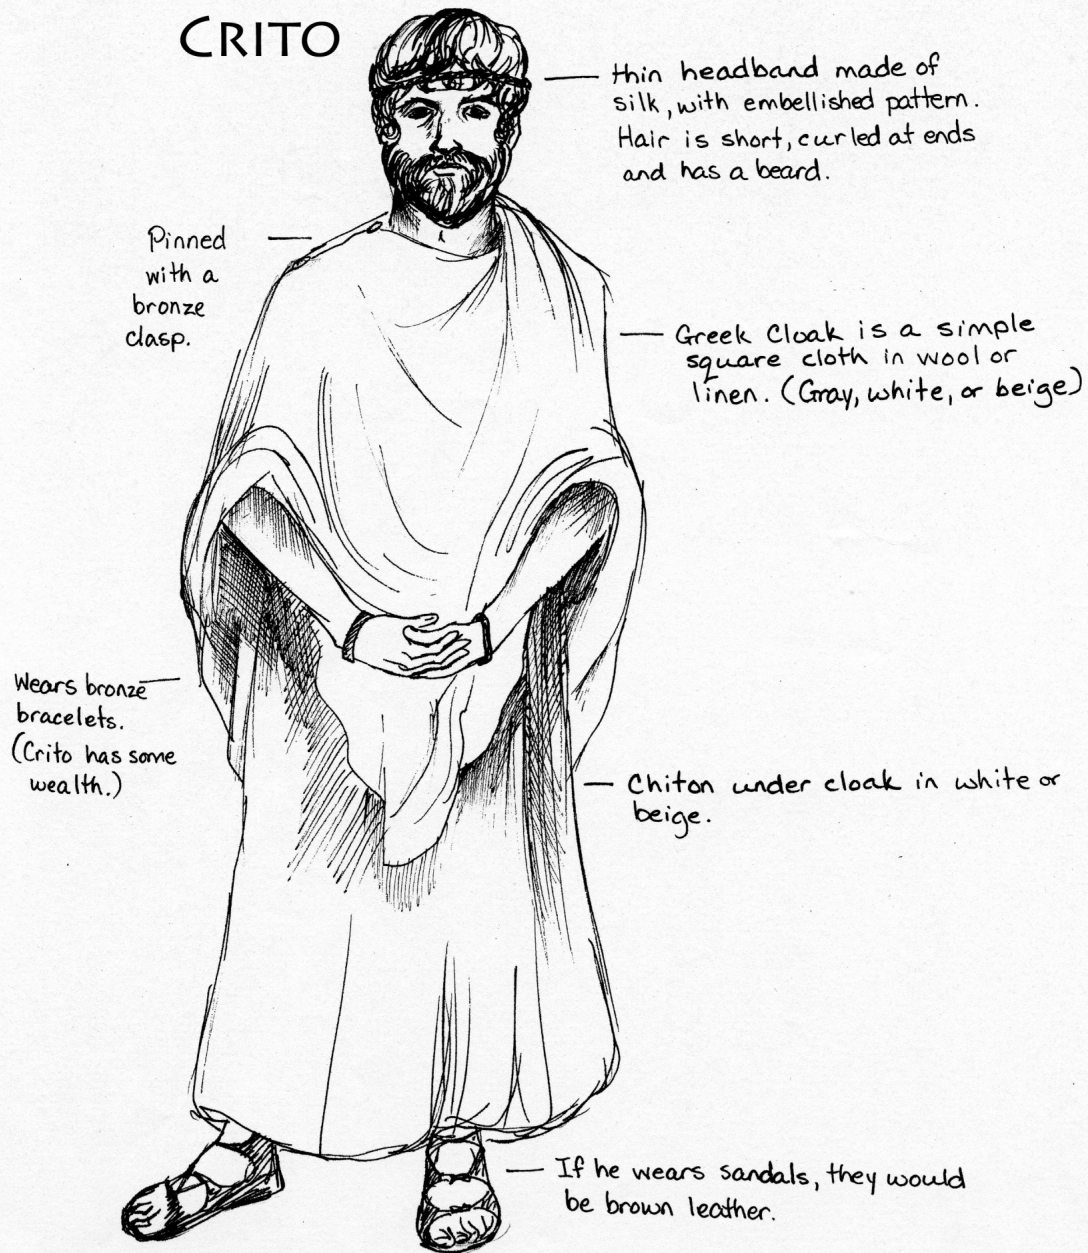 CRITO
thin headband made of
silk, with embellished pattern.
Hair is short, curled at ends
and has a beard.
Pinned
with a
bronze
clasp.
Greek Cloak is a simple
square cloth in wool or
linen. (Gray, white, or beige)
Wears bronze
bracelets.
(Crito has some
wealth.)
Chiton under cloak in white or
beige.
If he wears sandals, they would
be brown leather.